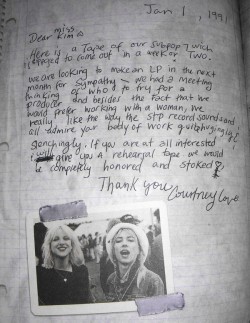 Jan 1, 1991
miss
Dear Kim
Here is a Tape of our Subpop 7 inch
to come out in a week or Two.
we are looking to make an LP in the next
month for Sympathy – we had a meeting
thinking of who to try for a
producer and besides the Fact that we
would prefer working with a woman, we
really like the way the STP record sounds and
all admire your body of work
If you are at all interested
I will give you a rehearsal tape we would
be completely honored and stoked
Thank you
Courtney Love